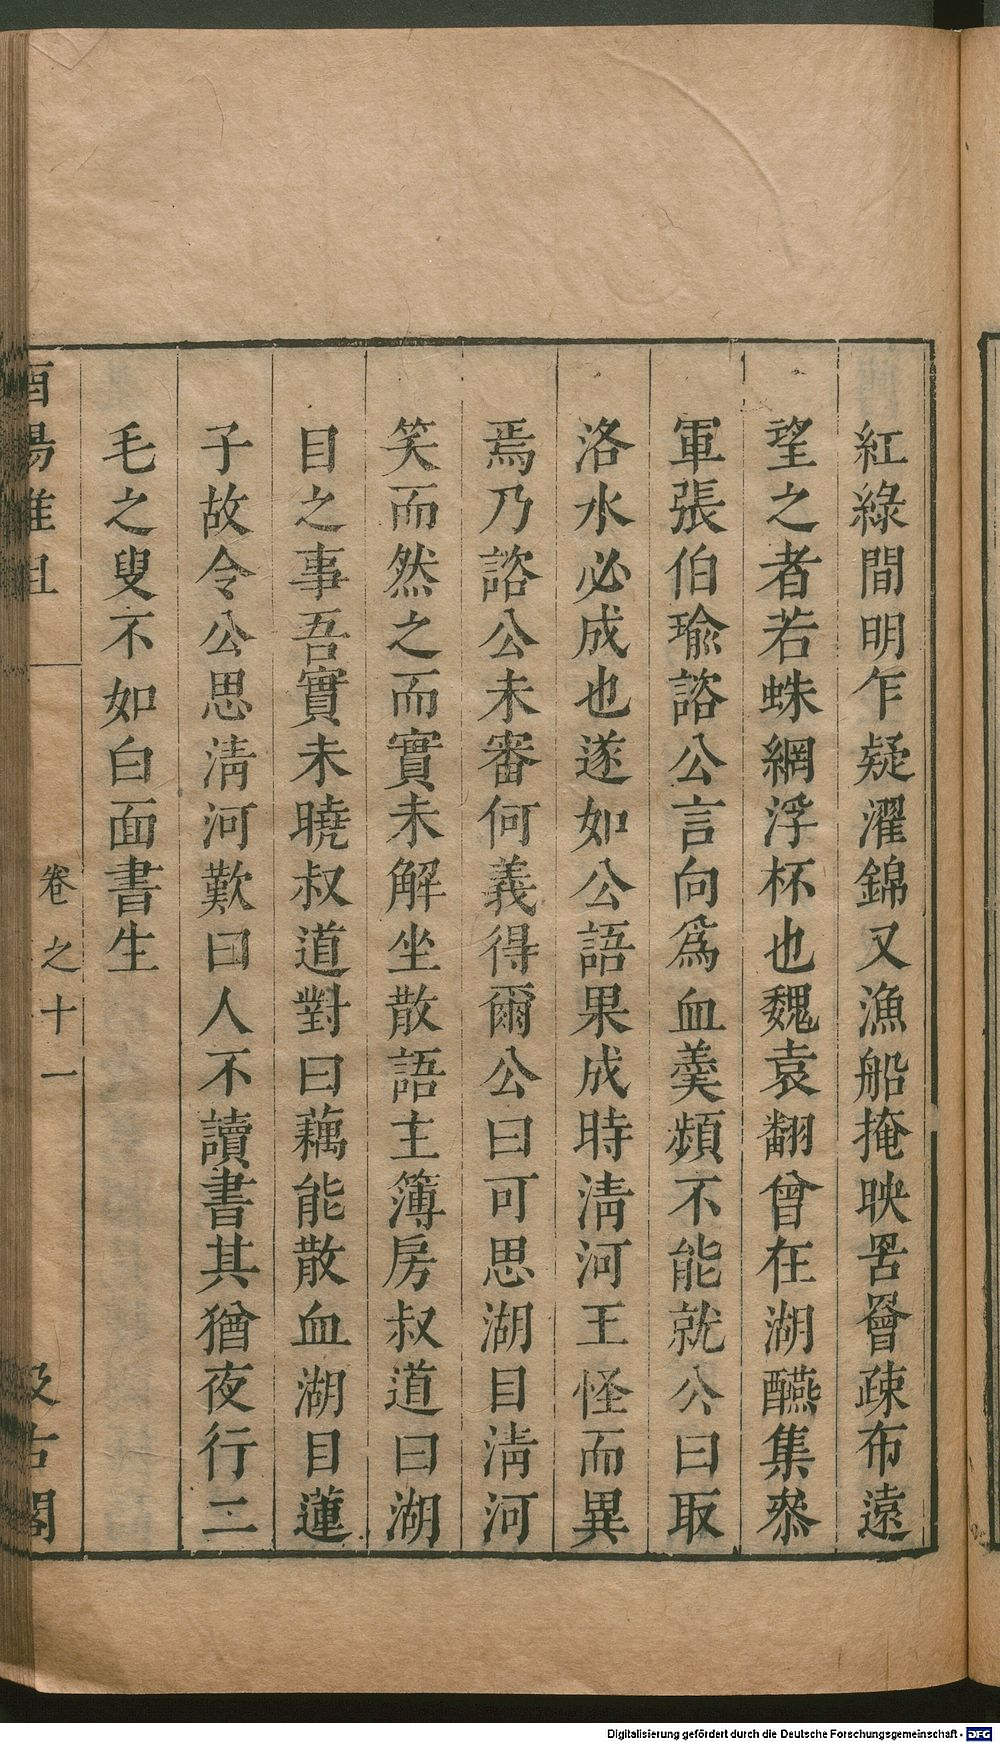 紅綠間明乍疑濯錦又漁船掩映罟罾疎布遠
望之者若蛛網浮杯也魏袁翻曾在湖醼集叅
軍張伯瑜諮公言向爲血羹頻不能就公曰取
洛水必成也遂如公語果成時淸河王怪而異
焉乃諮公未審何義得爾公曰可思湖目淸河
笑而然之而實未解坐散語主簿房叔道曰湖
目之事吾實未曉叔道對曰藕能散血湖目蓮
子故令公思淸河歎曰人不讀書其猶夜行二
毛之叟不如白面書生
酉陽雜俎
卷之十一
汲古閣
Digitalisierung gefördert durch die Deutsche Forschungsgemeinschaft - DFG